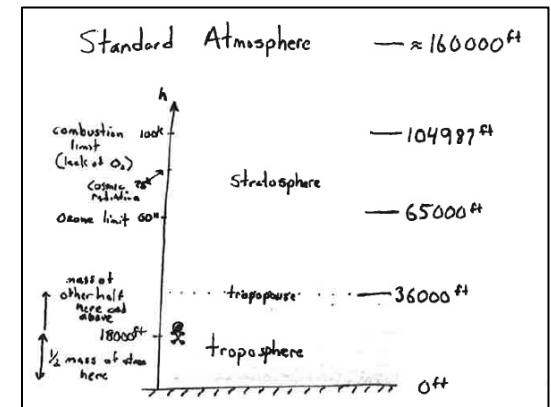 Standard Atmosphere
≈ 160000 ft
h
combustion limit (lack of O₂)
100k
104987 ft
Cosmic
Stratosphere
Ozone limit 60k
65000 ft
mass of
other half
here and
above
tropopause
36000 ft
18000 ft
troposphere
½ mass of
here
0 ft